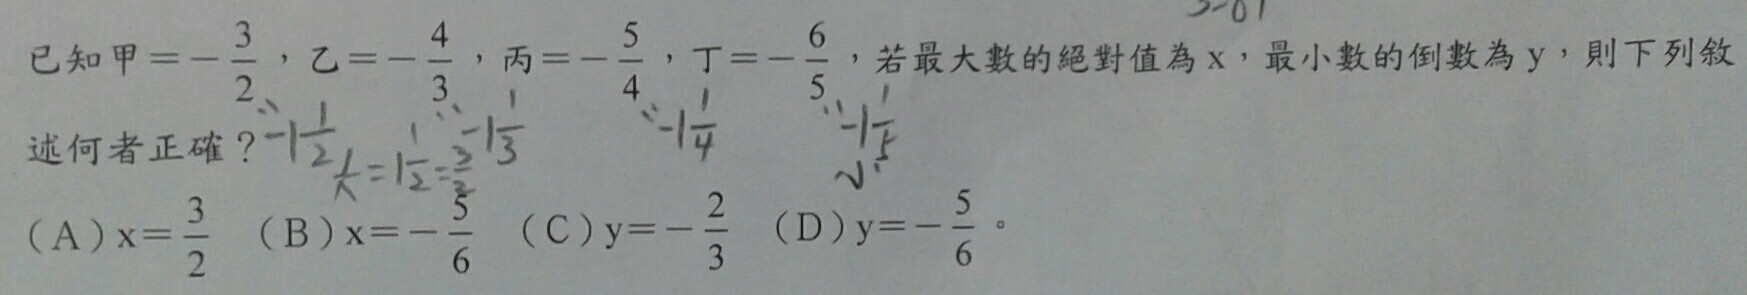 已知甲=-3/2,乙=-4/3,丙=-5/4,丁=-6/5,若最大數的絕對值為x,最小數的倒數為y,則下列敘
-1 1/2 -1 1/3 -1 1/4 -1 1/5
述何者正確?
=1 1/2=3/2
(A)x=3/2 (B)x=-5/6 (C)y=-2/3 (D)y=-5/6。